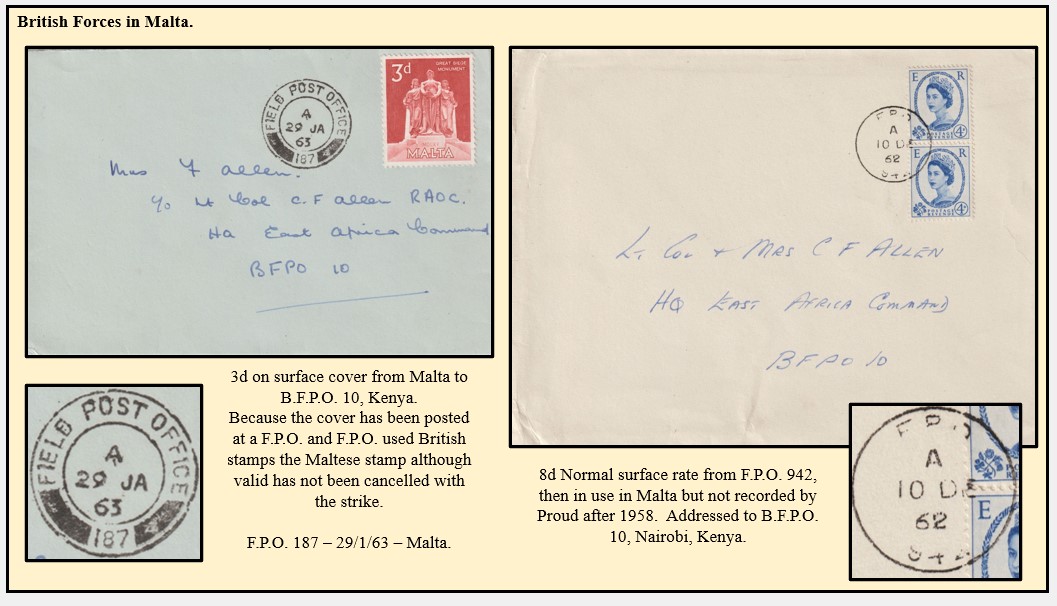 British Forces in Malta.
FIELD POST OFFICE
A
29 JA
63
187
3d
GREAT SIEGE
MONUMENT
MALTA
Mrs F Allen.
c/o Lt Col C.F Allen RAOC.
HQ East Africa Command
BFPO 10
F.P.O.
A
10 DE
62
942
E R
POSTAGE
REVENUE
4d
E R
POSTAGE
REVENUE
4d
Lt. Col & Mrs C F ALLEN
HQ EAST AFRICA COMMAND
BFPO 10
FIELD POST OFFICE
A
29 JA
63
187
3d on surface cover from Malta to
B.F.P.O. 10, Kenya.
Because the cover has been posted
at a F.P.O. and F.P.O. used British
stamps the Maltese stamp although
valid has not been cancelled with
the strike.
F.P.O. 187 – 29/1/63 – Malta.
8d Normal surface rate from F.P.O. 942,
then in use in Malta but not recorded by
Proud after 1958.  Addressed to B.F.P.O.
10, Nairobi, Kenya.
F.P.O
A
10 DE
62
942
E